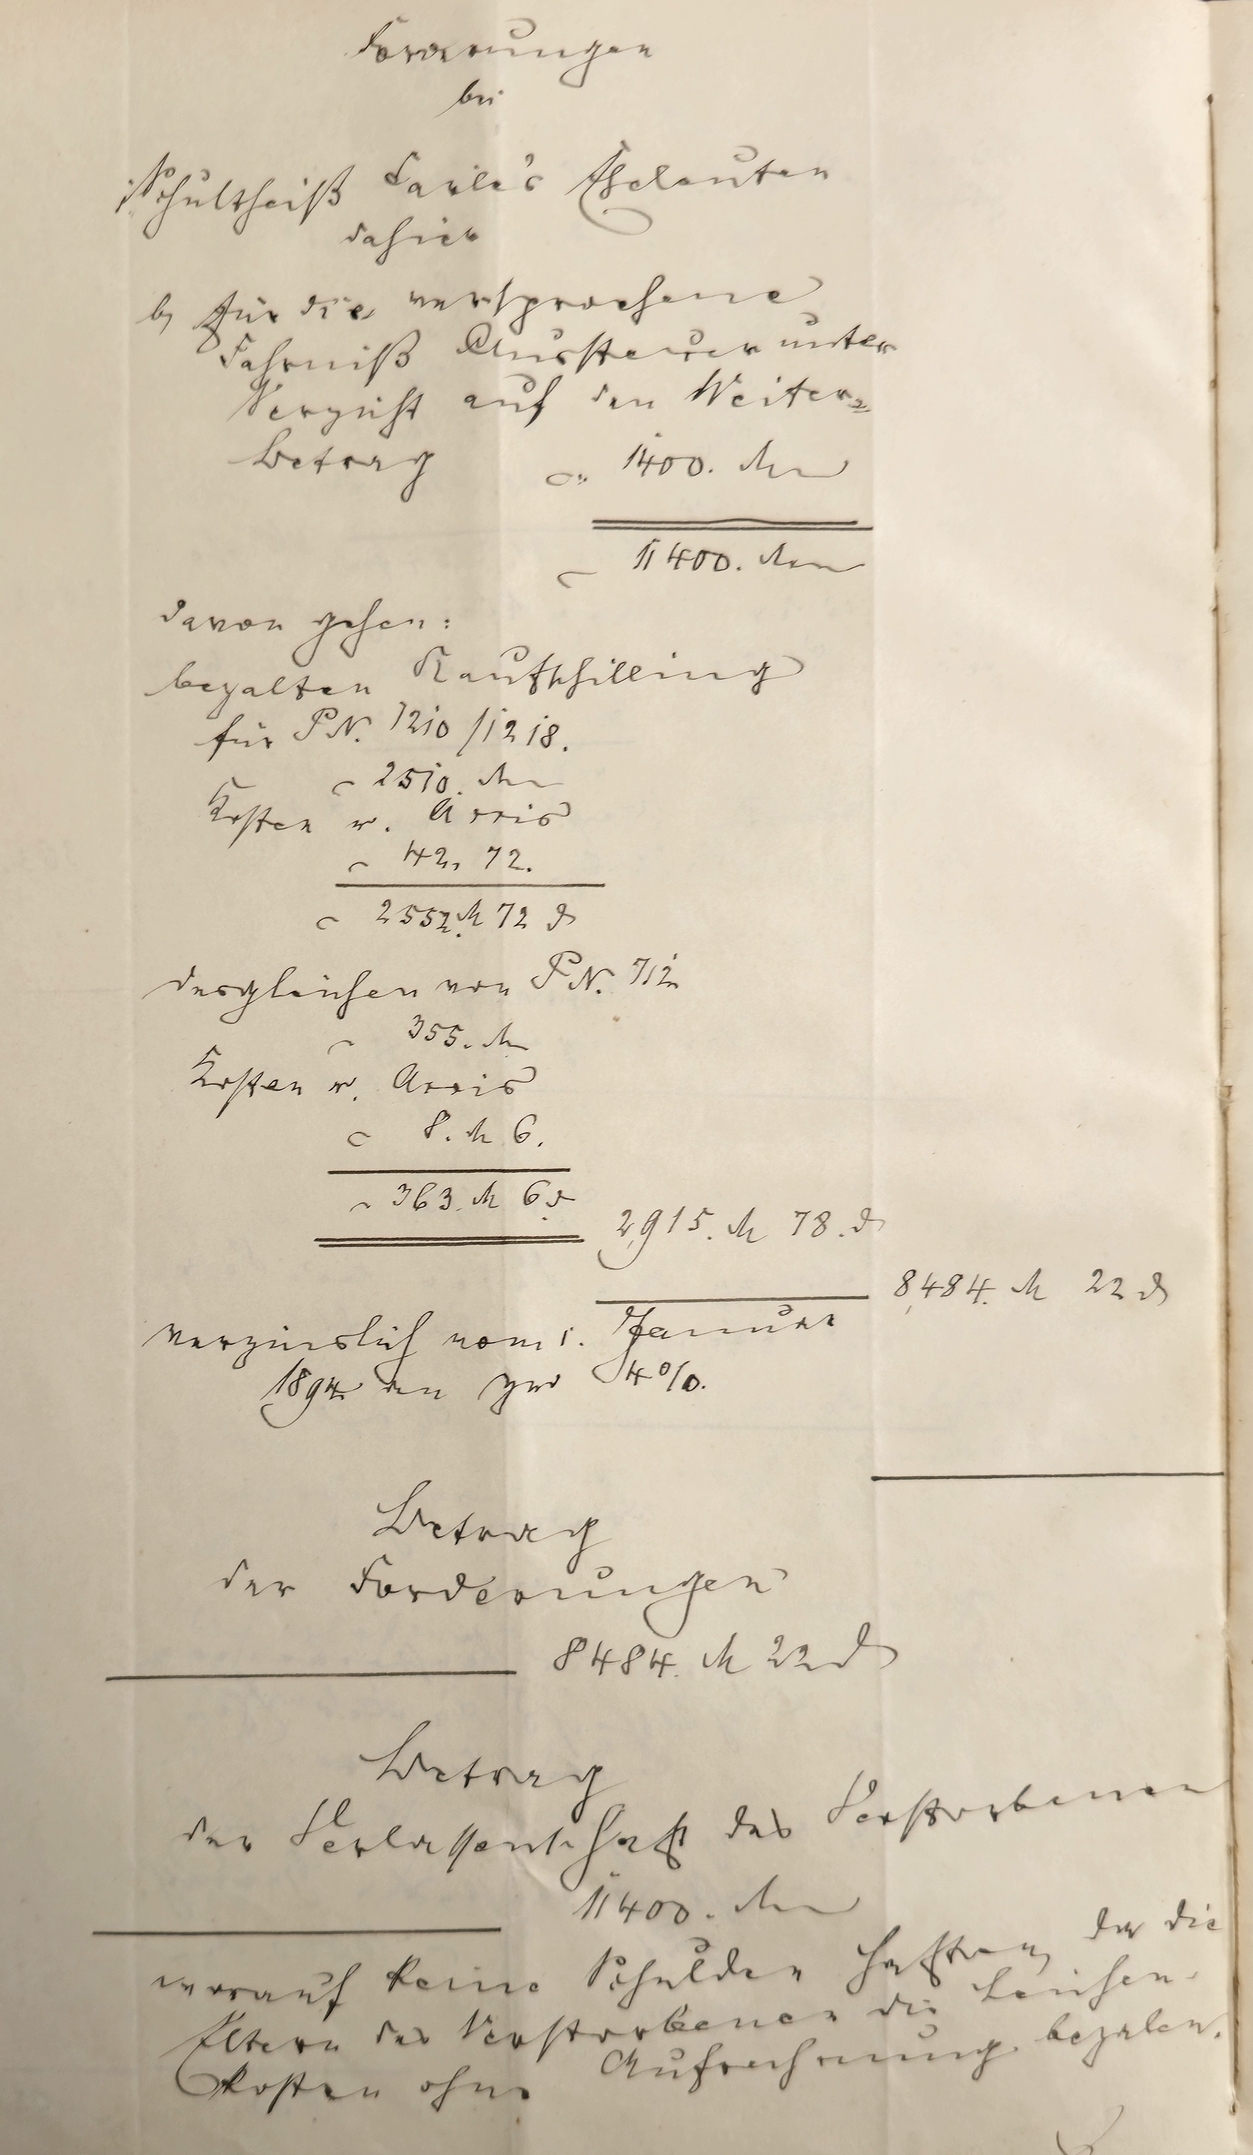 Forderungen
bei
Schultheiß Carle's Eheleuten
dahier
b, für die versprochene
Fahrniß Aussteuer unter
Verzicht auf den Weiter=
betrag " 1400. M
11400. M
davon gehen:
bezalten Kaufschilling
für P.N. 1210/1218.
2510. M
Kosten v. Accis
42, 72.
2552 M 72 d
desgleichen von P.N. 712
355. M
Kosten v. Accis
8. M 6.
363. M 6 d
2915. M 78. d
8484. M 22 d
verzinslich vom 1. Januar
1894 an zu 4%.
Betrag
der Forderungen
8484. M 22 d
Betrag
der Verlassenschaft des Verstorbenen
11400. M
worauf keine Schulden haften, da die
Eltern des Verstorbenen die Leichen-
kosten ohne Aufrechnung bezalen.